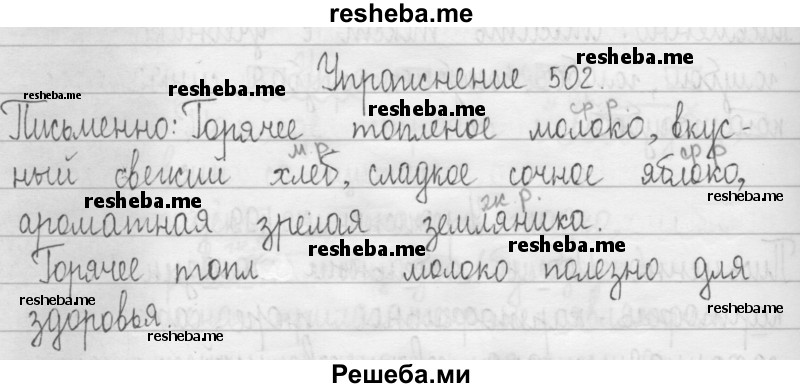 resheba.me
Упражнение 502.
resheba.me
resheba.me resheba.me resheba.me
ср. р.
Письменно: Горячее топленое молоко, вкус-
resheba.me resheba.me
м. р. ср. р.
ный свежий хлеб, сладкое сочное яблоко,
resheba.me resheba.me resheba.me
ж. р.
ароматная зрелая земляника.
resheba.me resheba.me
Горячее топл молоко полезно для
resheba.me resheba.me
здоровья.
resheba.me resheba.me
Решеба.ми